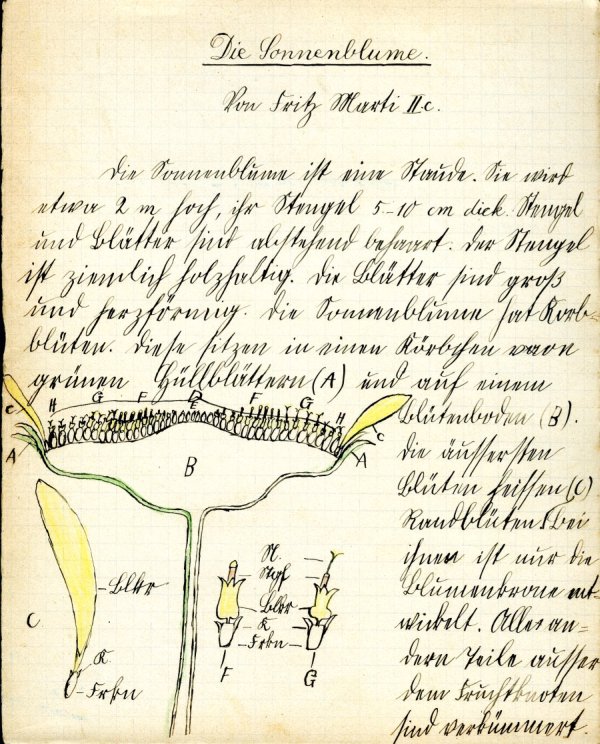 Die Sonnenblume.
Von Fritz Marti II.c.
Die Sonnenblume ist eine Staude. Sie wird
etwa 2 m hoch, ihr Stengel 5-10 cm dick. Stengel
und Blätter sind abstehend behaart. Der Stengel
ist ziemlich holzhaltig. Die Blätter sind groß
und herzförmig. Die Sonnenblume hat Korb-
blüten. Diese sitzen in einen Körbchen
grünen Hüllblättern (A) und auf einem
Blütenboden (B).
Die äussersten
Blüten heissen (C)
Randblüten. Bei
ihnen ist nur die
Blumenkrone ent-
wickelt. Alle an-
dern Teile ausser
dem Fruchtknoten
sind verkümmert.
C H G F D E F G H C
A B A
C
Blkr
K
Frkn
N.
Stgf
Blkr
K
Frkn
F G